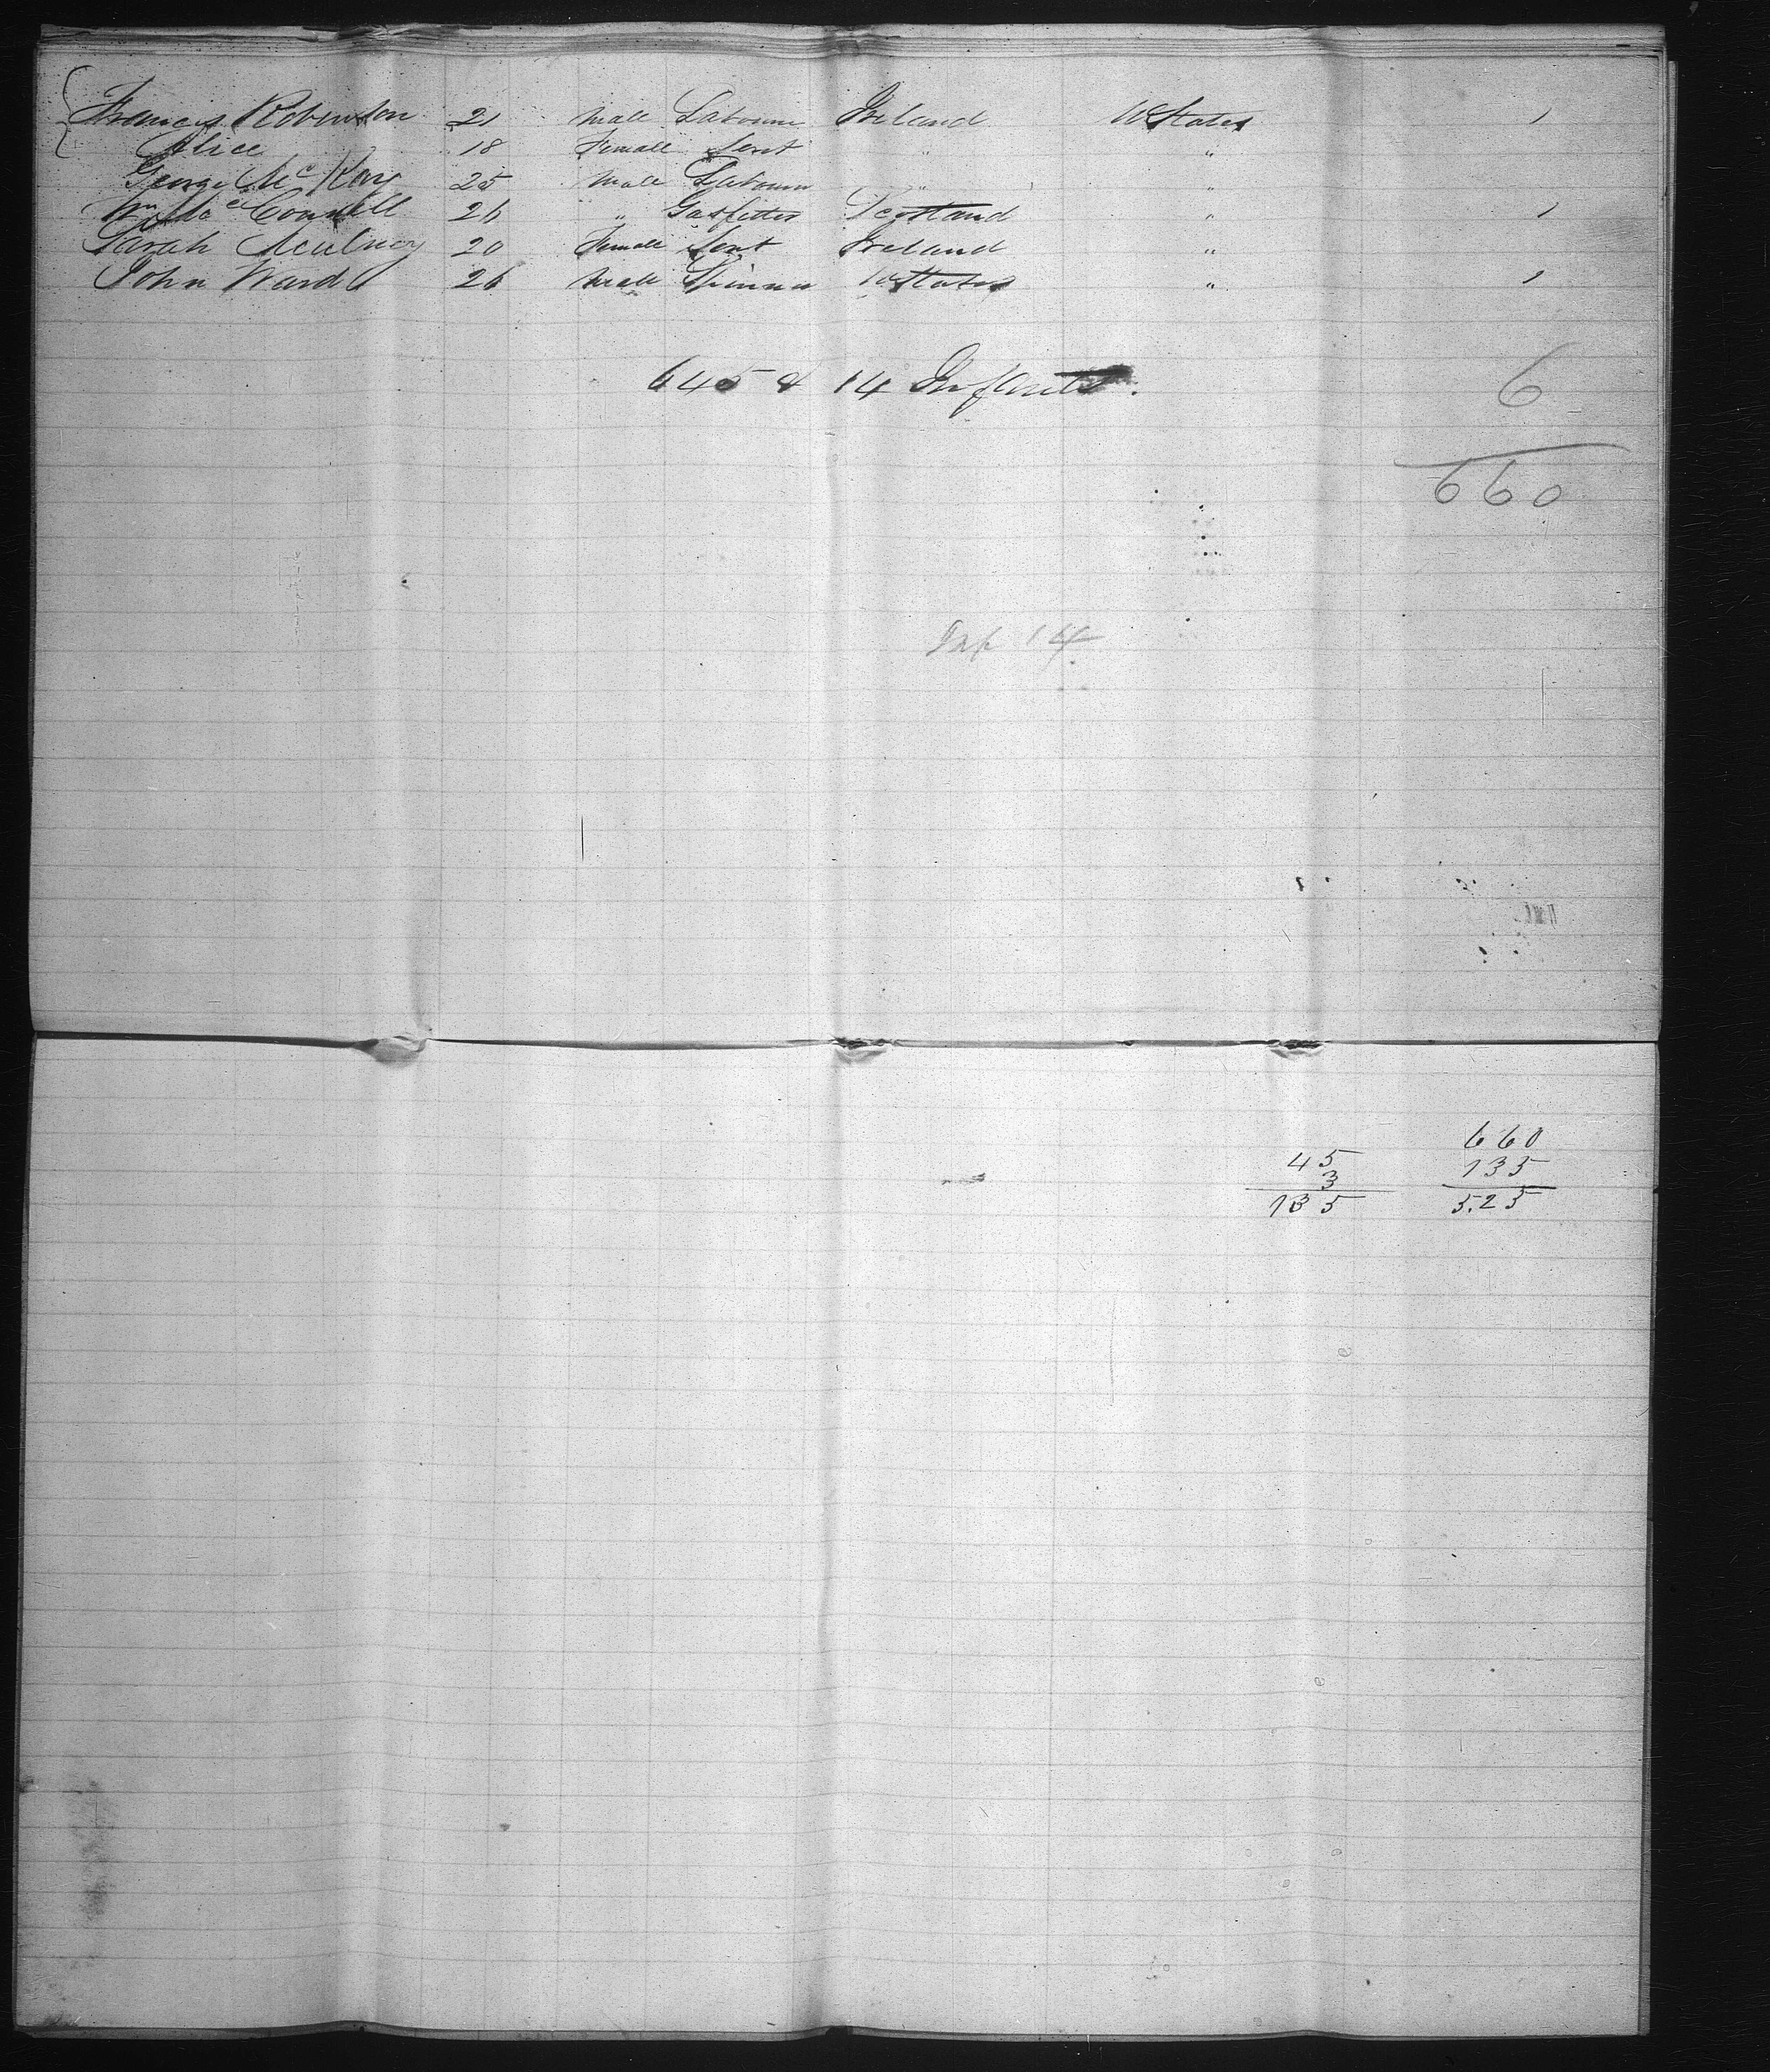 Francis Robinson 21 Male Labourer Ireland U States 1
Alice 18 Female Servt " "
George McKay 25 Male Labourer " "
Wm McConnell 26 " Gasfitter Scotland " 1
Sarah 20 Female Servt Ireland "
John Ward 26 Male Spinner U States " 1
645 & 14 Infants.
6
660
Inf 14
45
3
135
660
135
525